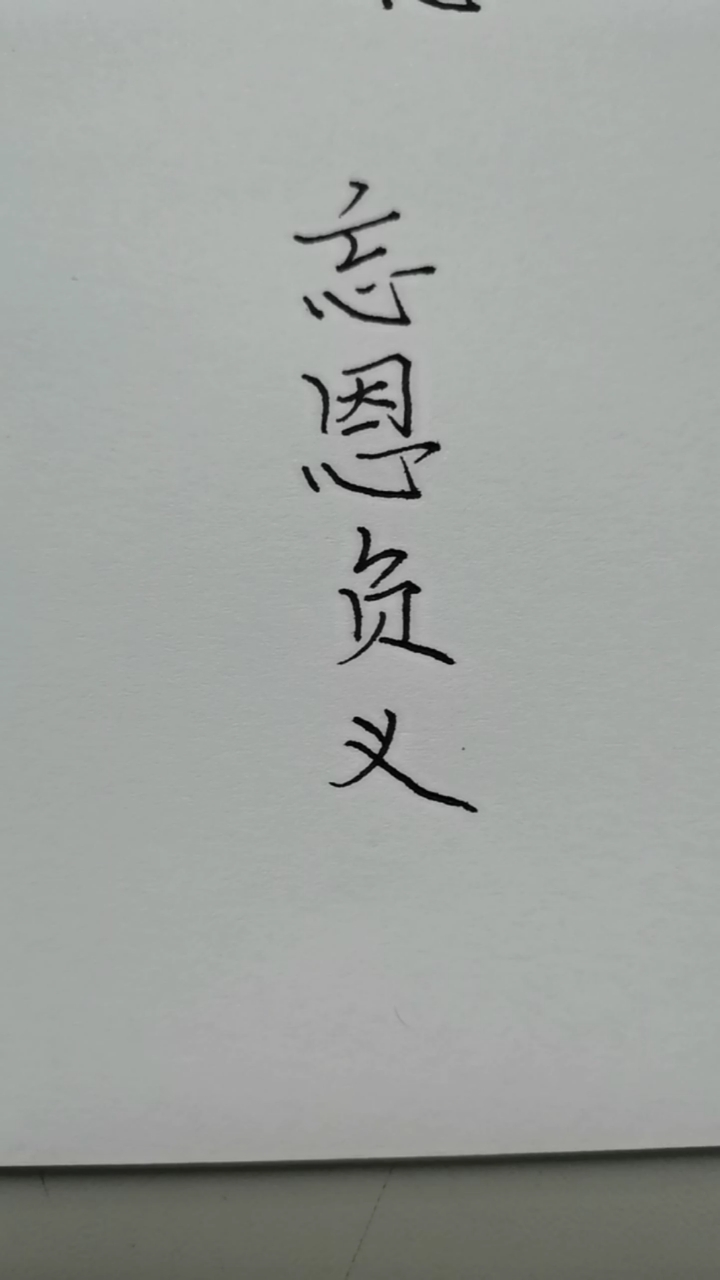 忘恩负义